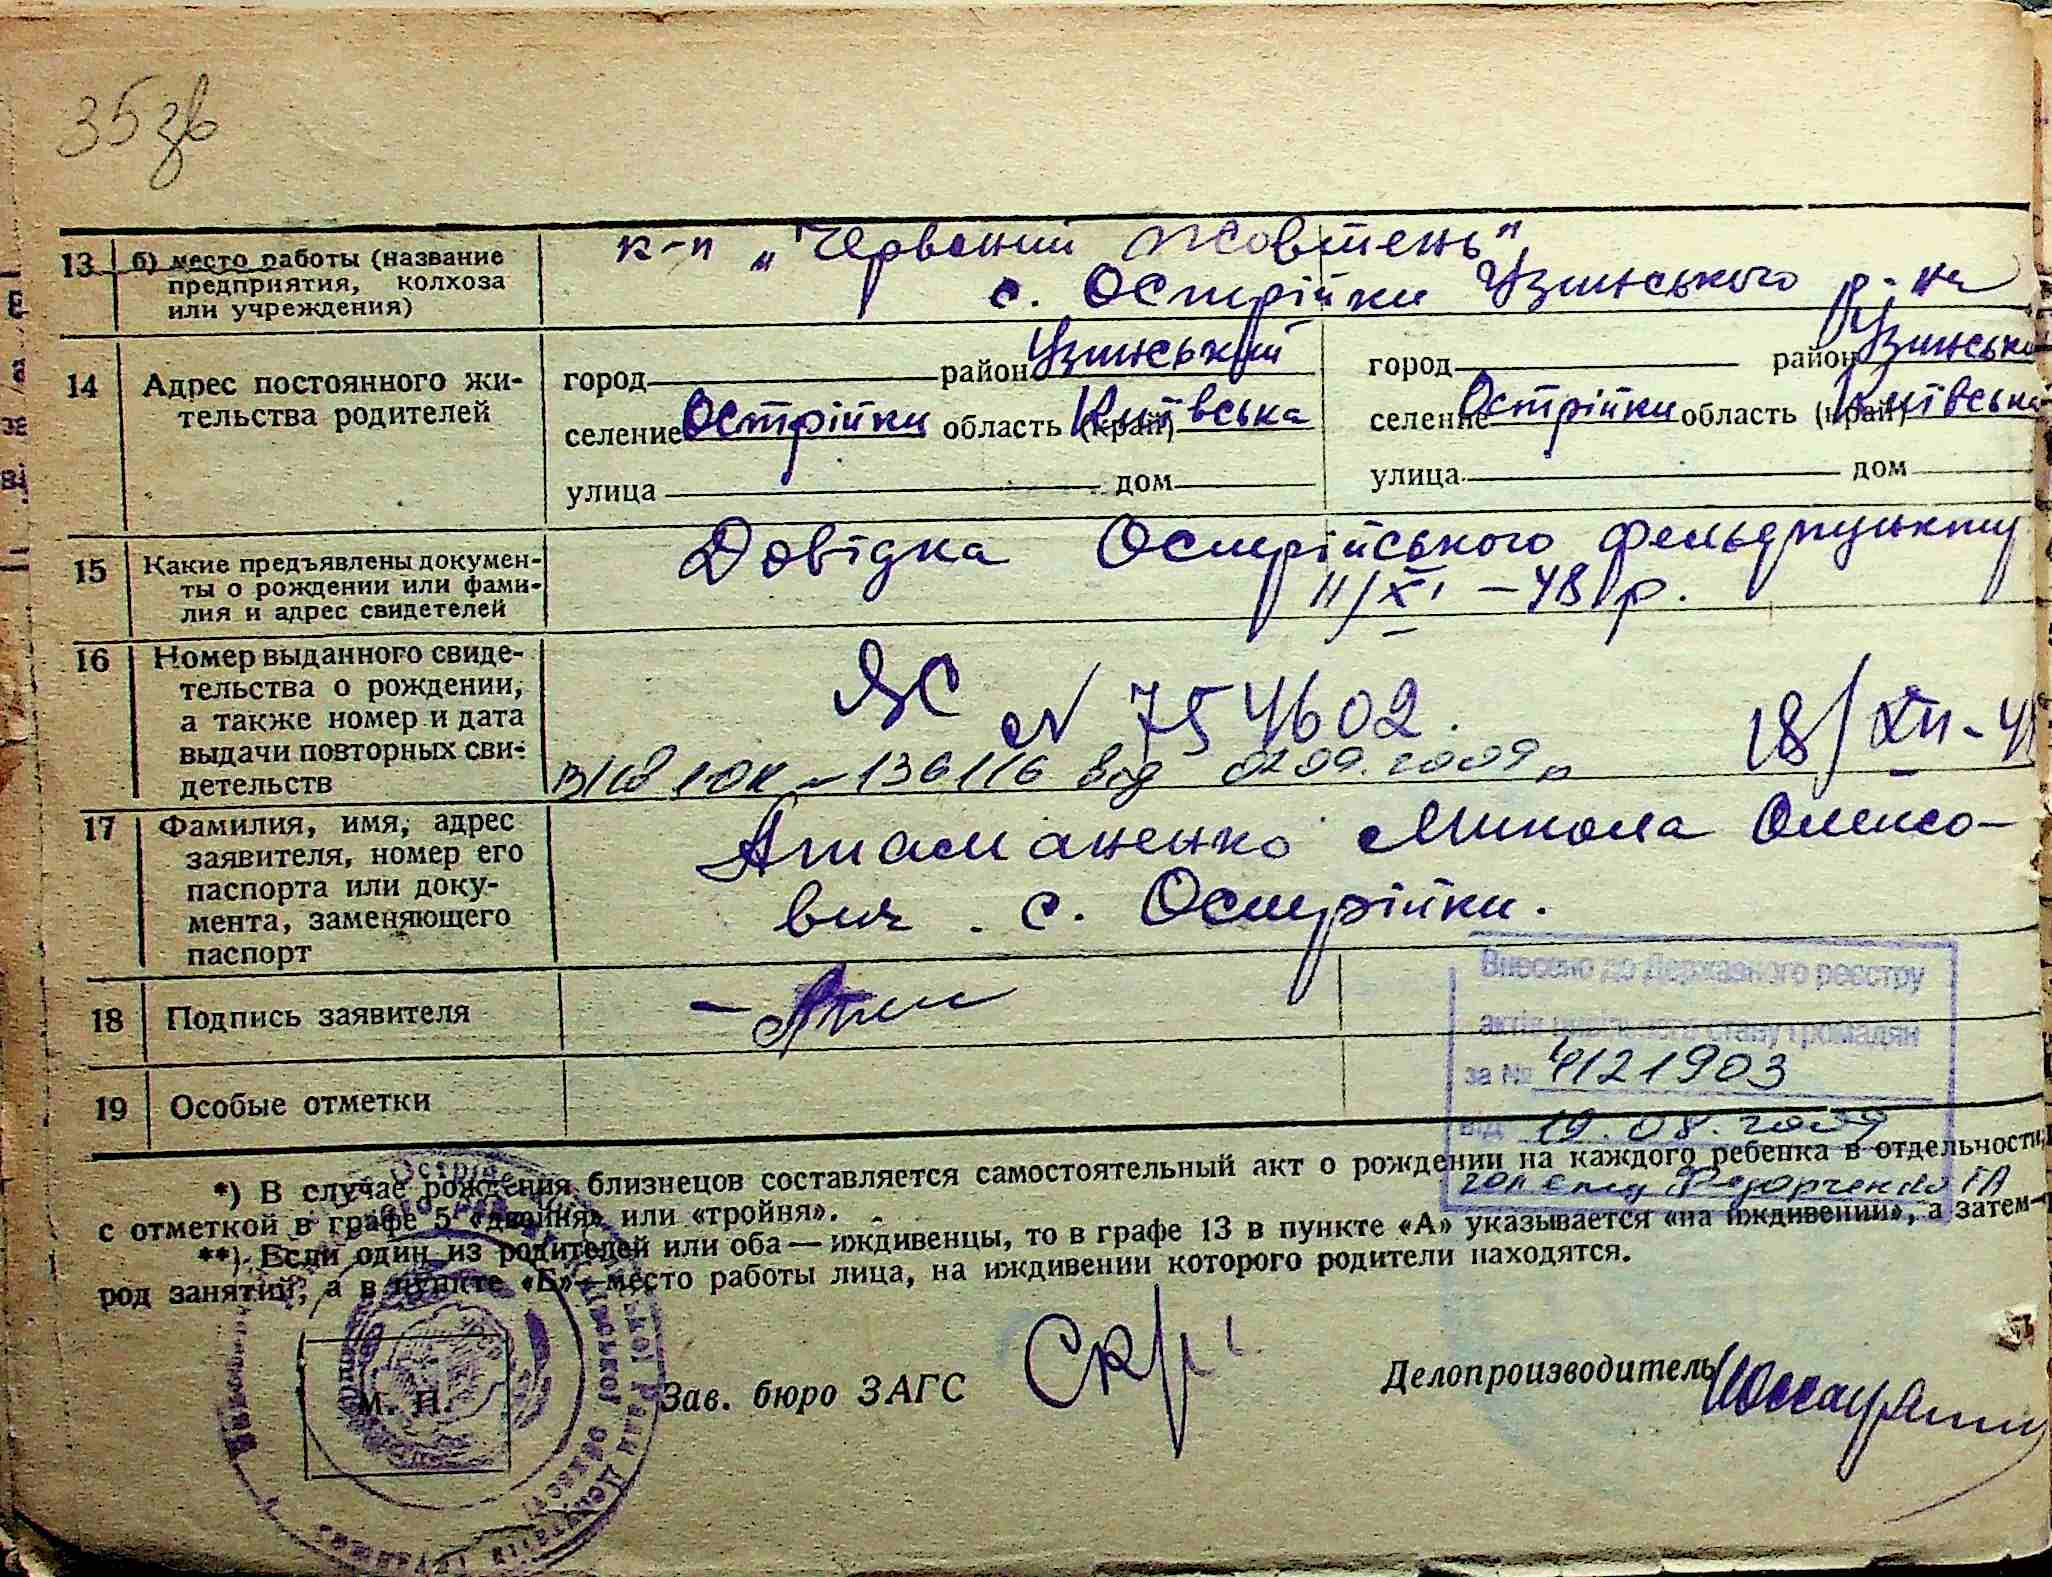 35 зв
13 б) место работы (название предприятия, колхоза или учреждения)
к-п „Червоний Жовтень"
с. Острійки Узинського р-на
14 Адрес постоянного жи-
тельства родителей
город район Узинський
селение Острійки область (край) Київська
улица дом
город район Узинськи
селение Острійки область (край) Київська
улица дом
15 Какие предъявлены докумен-
ты о рождении или фами-
лия и адрес свидетелей
Довідка Острійського фельдпункту
11/XI – 48 р.
16 Номер выданного свиде-
тельства о рождении,
а также номер и дата
выдачи повторных сви-
детельств
ЯС № 754602. 18/XII-4
136116 від 02.09.2009р
17 Фамилия, имя, адрес
заявителя, номер его
паспорта или доку-
мента, заменяющего
паспорт
Атаманенко Микола Олексо-
вич. с. Острійки.
18 Подпись заявителя
19 Особые отметки
Внесено до Державного реєстру
актів цивільного стану громадян
за № 4121903
від 19.08.2009
Федорченко ГА
*) В случае рождения близнецов составляется самостоятельный акт о рождении на каждого ребенка в отдельности,
с отметкой в графе 5 «двойня» или «тройня».
**) Если один из родителей или оба — иждивенцы, то в графе 13 в пункте «А» указывается «на иждивении», а затем—
род занятий, а в пункте «Б»—место работы лица, на иждивении которого родители находятся.
М. П.
Зав. бюро ЗАГС
Делопроизводитель